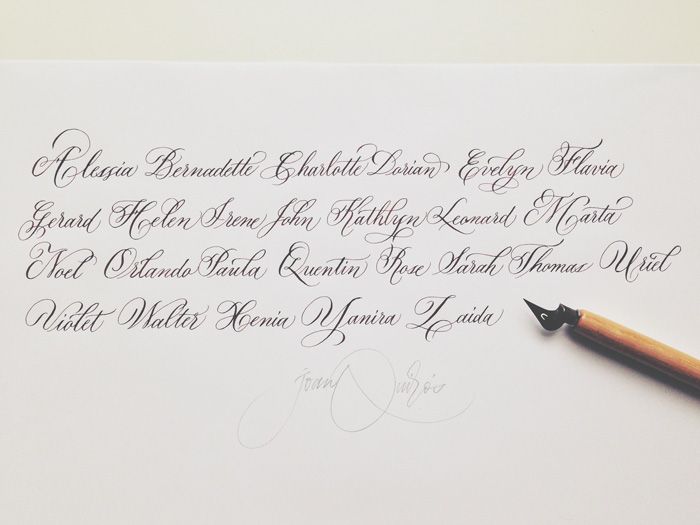 Alessia Bernadette Charlotte Dorian Evelyn Flavia
Gerard Helen Irene John Kathlyn Leonard Marta
Noel Orlando Paula Quentin Rose Sarah Thomas Uriel
Violet Walter Xenia Yanira Zaida
Joan Quirós